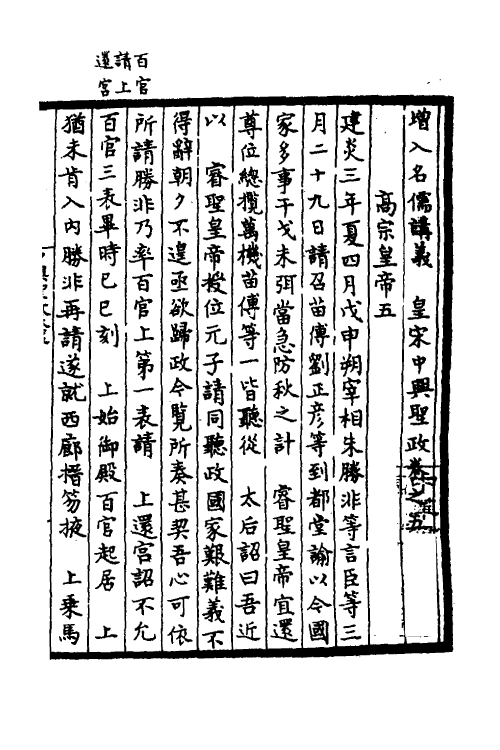 百官
請上
還宮
增入名儒講義　皇宋中興聖政卷之五
高宗皇帝五
建炎三年夏四月戊申朔宰相朱勝非等言臣等三
月二十九日請召苗傅劉正彦等到都堂諭以今國
家多事干戈未弭當急防秋之計　睿聖皇帝宜還
尊位總攬萬機苗傅等一皆聽從　太后詔曰吾近
以　睿聖皇帝授位元子請同聽政國家艱難義不
得辭朝夕不遑亟欲歸政今覽所奏甚契吾心可依
所請勝非乃率百官上第一表請　上還宮詔不允
百官三表畢時巳巳刻　上始御殿百官起居　上
猶未肯入內勝非再請遂就西廊搢笏掖　上乘馬